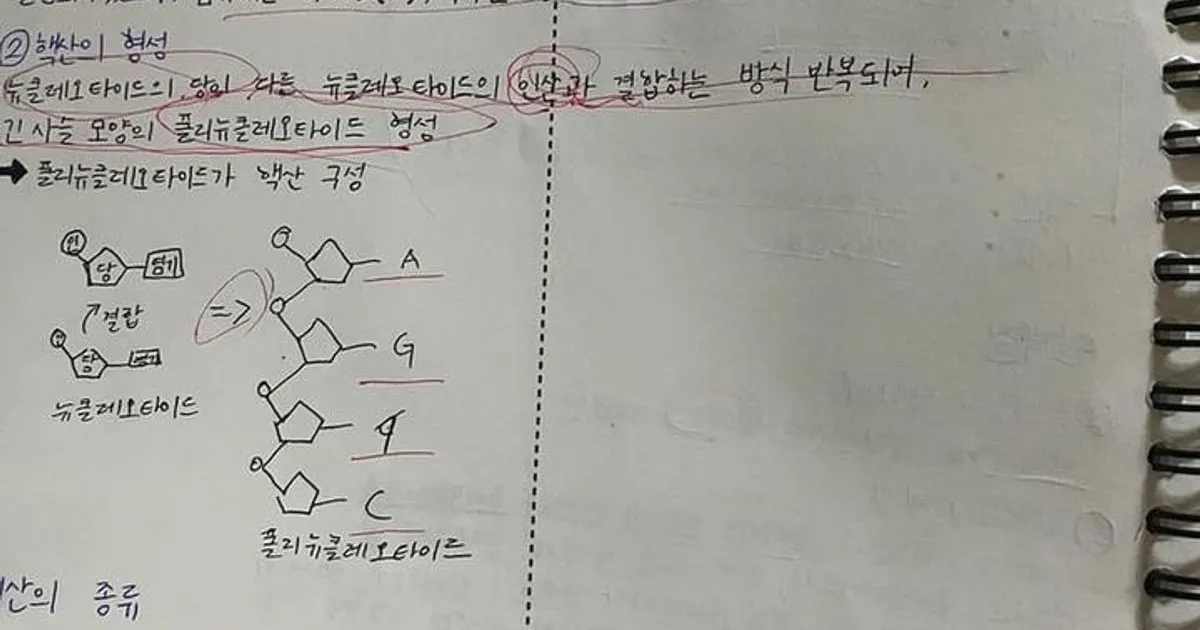 ②핵산의 형성
뉴클레오타이드의 당이 다른 뉴클레오타이드의 인산과 결합하는 방식 반복되어,
긴 사슬 모양의 폴리뉴클레오타이드 형성
→ 폴리뉴클레오타이드가 핵산 구성
인 당 염기
↗결합
인 당 염기
뉴클레오타이드
=>
A
G
C
폴리뉴클레오타이드
산의 종류